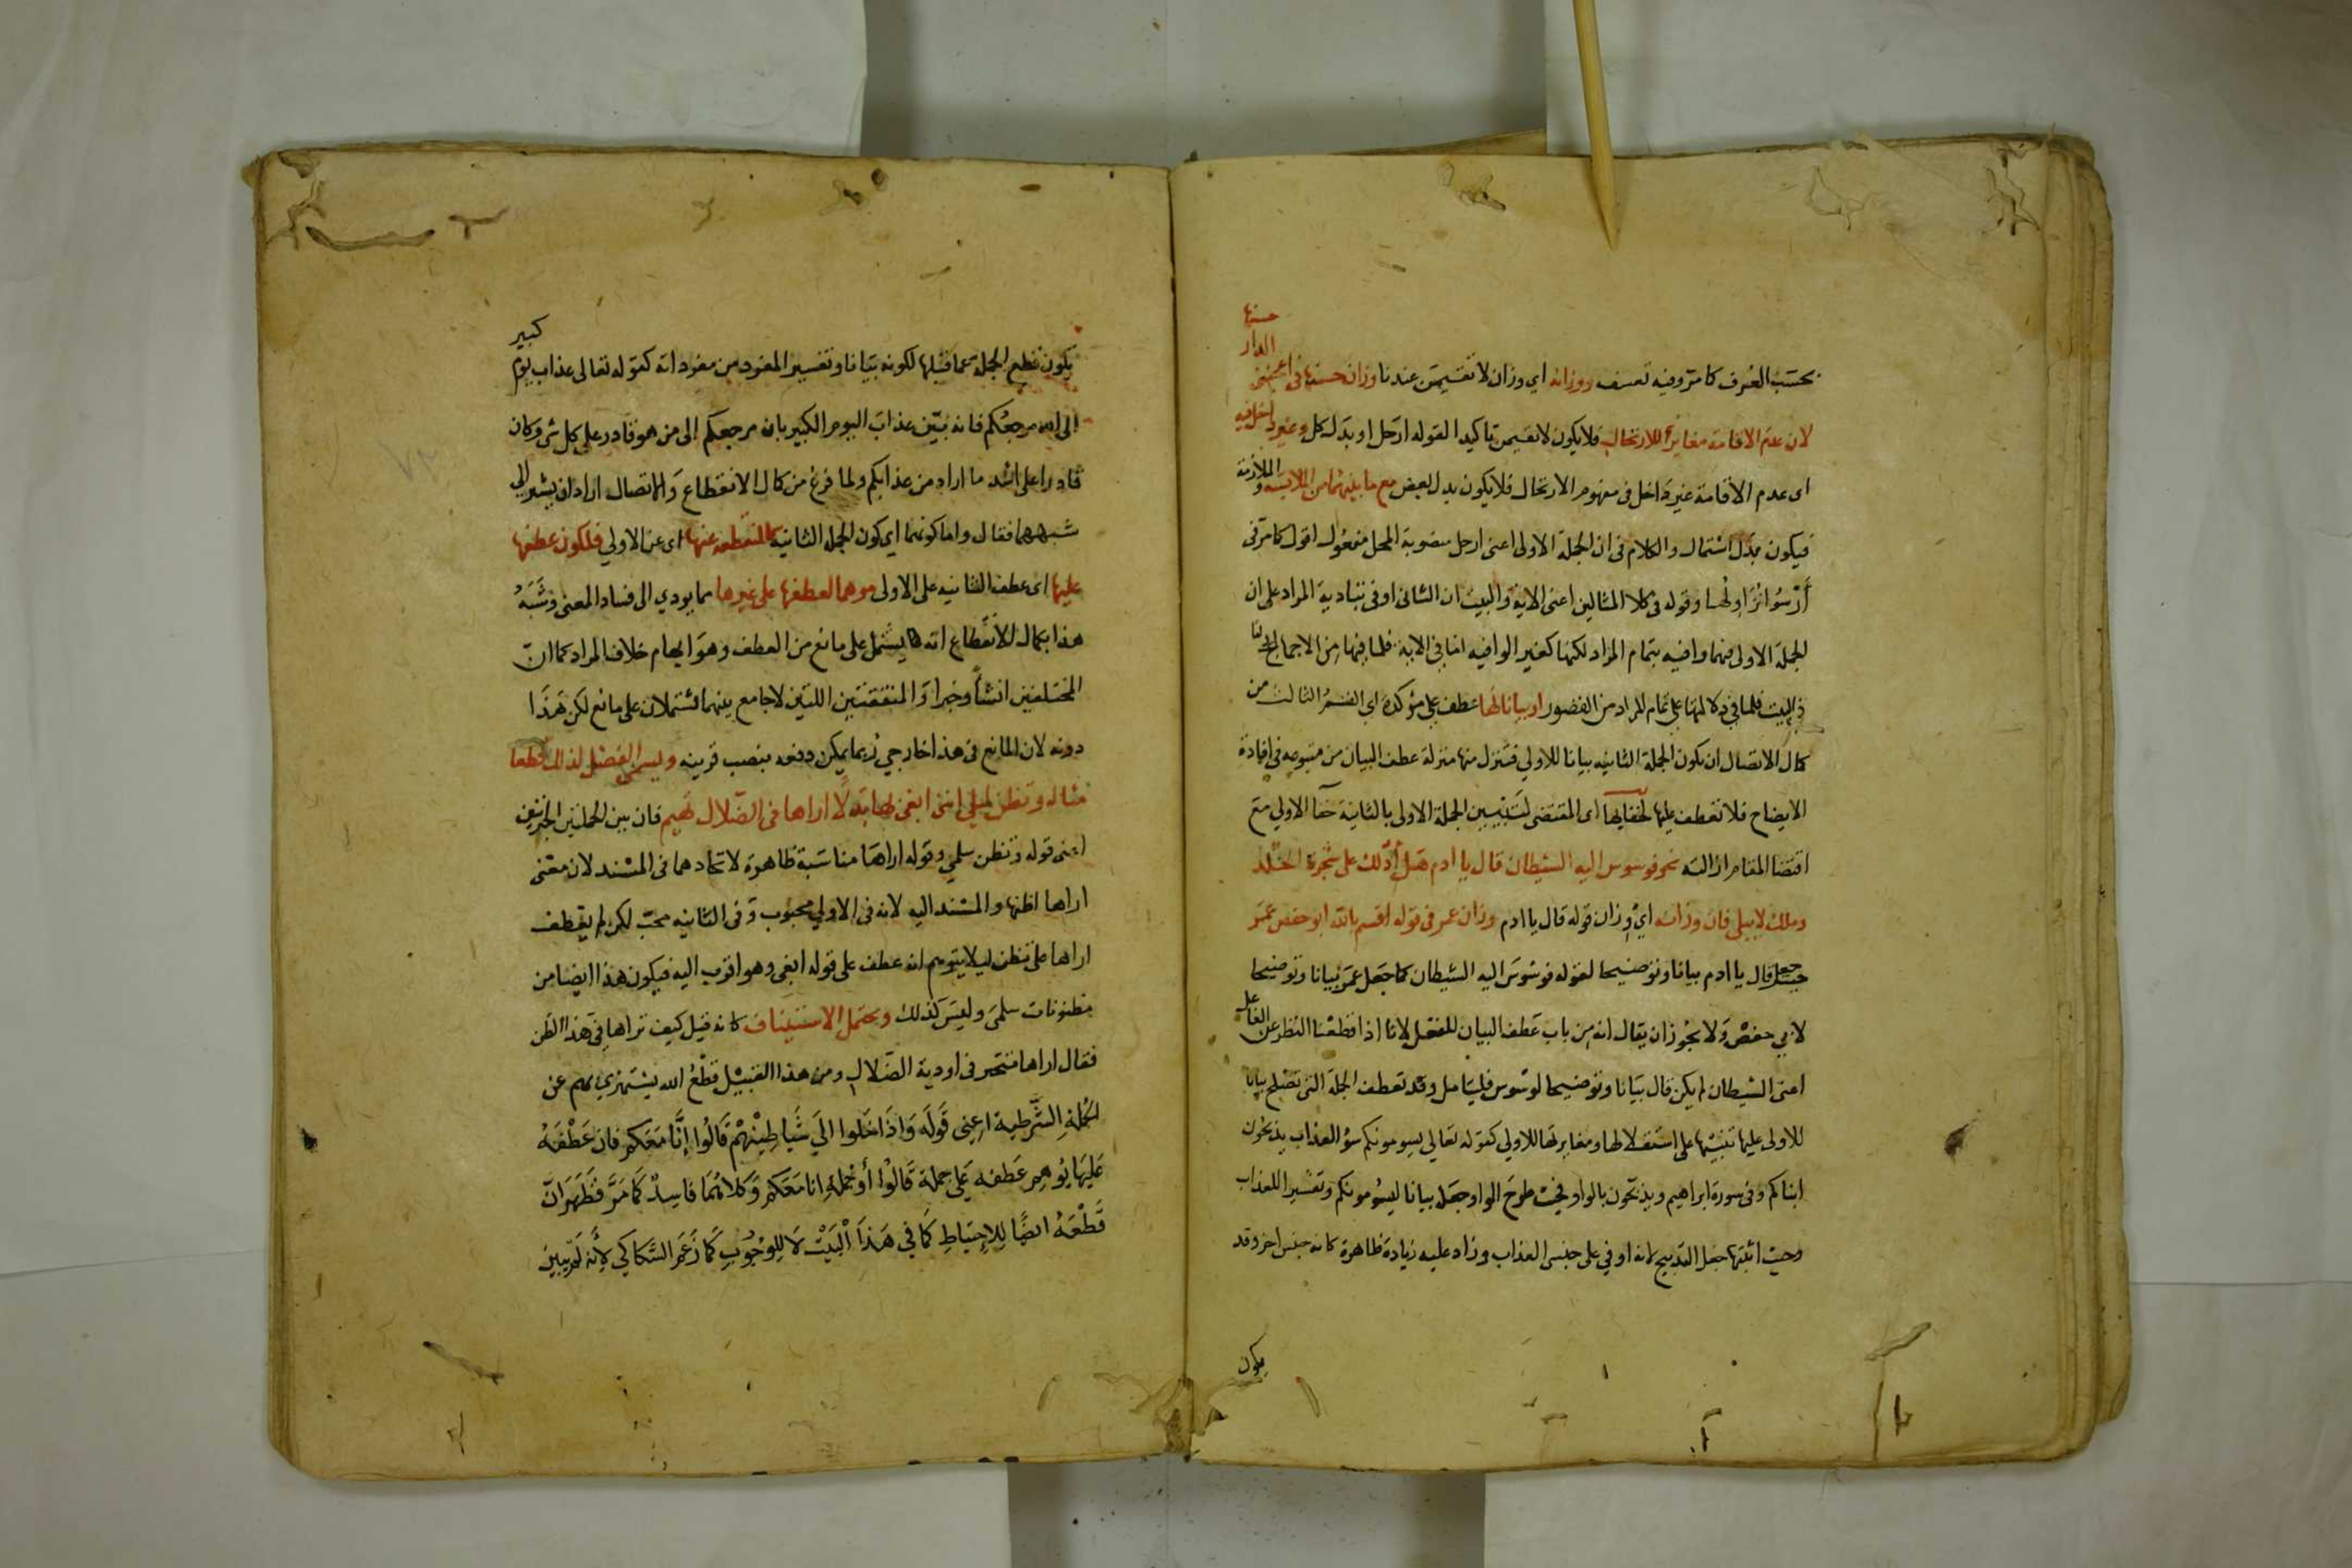 بحسب العرف كما مر وفيه تعسف ووزانه اي وزان لا تقيمن عندنا وزان حسنها في اعجبني الدار حسنها
لان عدم الاقامة مغاير للارتحال فلا يكون لا تقيمن تاكيدا لقوله ارحل او بدل كل وغير داخل فيه
اى عدم الاقامة غير داخل فى مفهوم الارتحال فلا يكون بدل بعض مع ما بينهما من الملابسة والملازمة
فيكون بدل اشتمال والكلام فى ان الجملة الاولى اعنى ارحل منصوبة المحل مفعول اقول كما مر فى
أرسوا نزاولها وقوله فى كلا المثالين اعنى الاية والبيت ان الثانى اوفى بتادية المراد على ان
الجملة الاولى فيهما وافيه بتمام المراد لكنها كغير الوافيه اما فى الاية فلما فيها من الاجمال واما
فى البيت فلما فى دلالتها على تمام المراد من القصور او بيانا لها عطف على مؤكدة اى القسم الثالث من
كمال الاتصال ان يكون الجملة الثانيه بيانا للاولي فتنزل منها منزلة عطف البيان من متبوعه فى افادة
الايضاح فلا تعطف عليها لخفايها اى المقتضى لتبيين الجملة الاولى بالثانية خفا الاولي مع
اقتضا المقام ازالته نحو فوسوس اليه الشيطان قال يا ادم هل أدلك على شجرة الخلد
وملك لا يبلى فان وزانه اي وزان قوله قال يا ادم وزان عمر فى قوله اقسم بالله ابو حفص عمر
جعل قال يا ادم بيانا وتوضيحا لقوله فوسوس اليه الشيطان كما جعل عمر بيانا وتوضيحا
لابي حفص ولا يجوز ان يقال انه من باب عطف البيان للفعل لانا اذا قطعنا النظر عن الفاعل
اعنى الشيطان لم يكن قال بيانا وتوضيحا لوسوس فليتامل وقد تعطف الجملة التى تصلح بيانا
للاولى عليها تنبيها على استقلالها ومغايرتها للاولي كقوله تعالي يسومونكم سؤ العذاب يذبحون
ابناكم وفى سورة ابراهيم ويذبحون بالواو فحيث طرح الواو جعل بيانا ليسومونكم وتفسيرا للعذاب
وحيث اثبتها جعل التذبيح لانه اوفي على جنس العذاب وزاد عليه زيادة ظاهرة كانه جنس اخر وقد
يكون
يكون قطع الجملة عما قبلها لكونه بيانا وتفسير المفرد من مفرداته كقوله تعالى عذاب يوم كبير
الى الله مرجعكم فانه بيّن عذاب اليوم الكبير بان مرجعكم إلى من هو قادر على كل شى وكان
قادرا على اشد ما اراد من عذابكم ولما فرغ من كمال الانقطاع والاتصال اراد ان يشير الي
شبههما فقال واما كونها اي كون الجملة الثانيه كالمنقطعه عنها اى عن الاولي فلكون عطفها
عليها اى عطف الثانيه على الاولى موهما لعطفها على غيرها مما يودي الى فساد المعنى وشبه
هذا بكمال الانقطاع انه يشتمل على مانع من العطف وهو ايهام خلاف المراد كما ان
المختلفين انشأ وخبرا والمتفقتين اللتين لا جامع بينهما تشتملان على مانع لكن هذا
دونه لان المانع فى هذا خارجي ربما يمكن دفعه بنصب قرينه ويسمى الفصل لذلك قطعا
مثاله وتظن سلمي اننى ابغى بها بدلا اراها فى الضلال تهيم فان بين الجملتين الخبريتين
اعنى قوله وتظن سلمي وقوله اراها مناسبة ظاهرة لاتحادهما فى المسند لان معنى
اراها اظنها والمسند اليه لانه فى الاولي محبوب وفى الثانيه محب لكن لم يعطف
اراها على تظن ليلا يتوهم انه عطف على قوله ابغى وهو اقرب اليه فيكون هذا ايضا من
مظنونات سلمى وليس كذلك ويحتمل الاستيناف كانه قيل كيف تراها فى هذا الظن
فقال اراها تتحير فى اودية الضلال ومن هذا القبيل قطع الله يستهزي بهم عن
الجملة الشرطية اعنى قوله واذا خلوا الى شياطينهم قالوا إنا معكم فان عطفه
عليها يوهم عطفه على جملة قالوا أو جملة انا معكم وكلاهما فاسد كما مر فظهر ان
قطعه ايضًا للاحتياط كما في هذا البيت لا للوجوب كما زعم السكاكي لأنه لم يبين